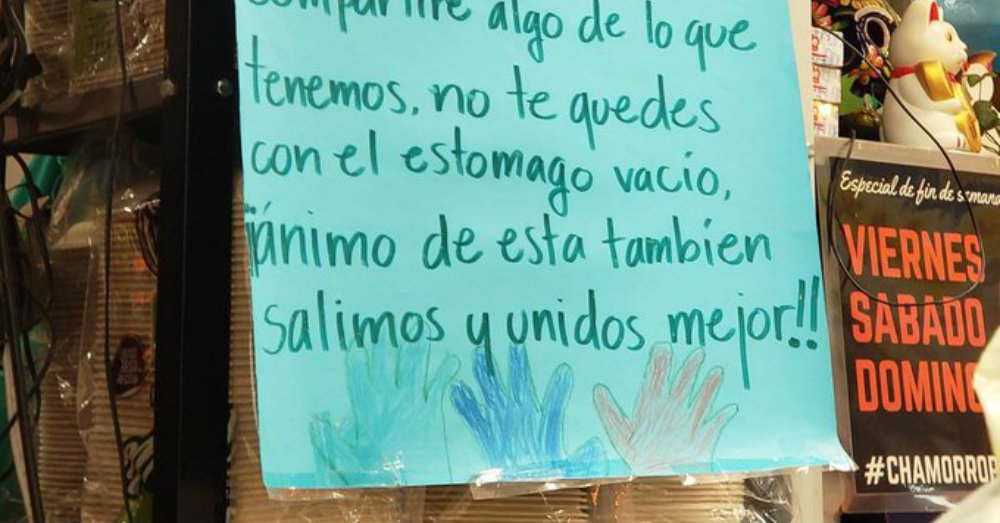 compartire algo de lo que
tenemos, no te quedes
con el estomago vacío,
¡¡ánimo de esta tambien
salimos y unidos mejor!!
Especial de fin de semana
VIERNES
SABADO
DOMINGO
#CHAMORRO